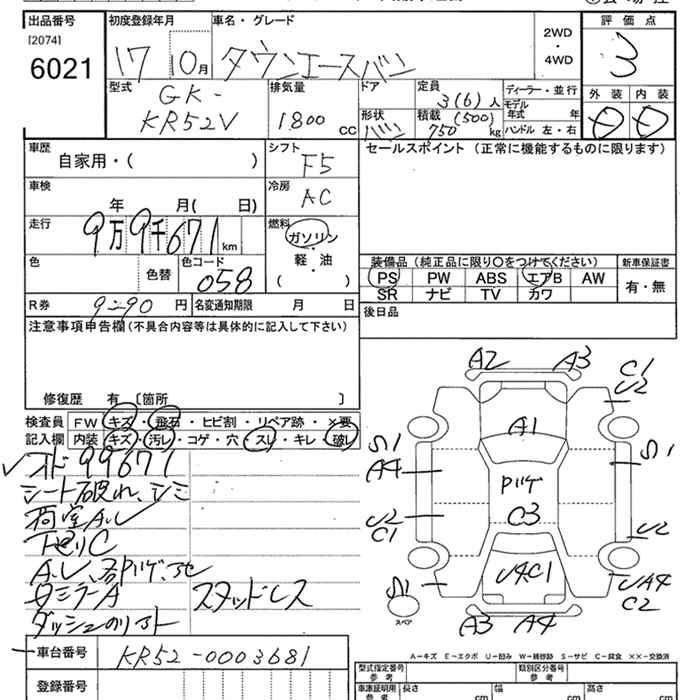 出品番号 初度登録年月 車名・グレード 評価点
[2074]
6021
17 10月 タウンエースバン
2WD
・
4WD
3
型式 排気量 ドア 定員 ディーラー・並行 外装 内装
GK-
KR52V
1800 CC
3(6)人
モデル年式 年
形状 バン 積載 (500) 750 kg ハンドル 左・右
D D
車歴 シフト セールスポイント (正常に機能するものに限ります)
自家用・( ) F5
車検 冷房
年 月( 日) AC
走行 燃料
9万9千671km ガソリン
・
軽油
・
( )
色 色替 色コード
058
装備品(純正品に限り〇をつけてください) 新車保証書
PS PW ABS エアB AW 有・無
SR ナビ TV カワ
R券 9290円 名変通知期限 月 日
後日品
注意事項申告欄(不具合内容等は具体的に記入して下さい)
修復歴 有 〔箇所 〕
検査員 FW キズ・飛石・ヒビ割・リペア跡・×要
記入欄 内装 キズ・汚レ・コゲ・穴・スレ・キレ・破レ
✓オド99671
シート破れ、シミ
荷室A.U
下廻りC
A.U、
ダッシュのリフト
スタッドレス
車台番号 KR52-0003681
登録番号
A2 A3
C1
U2
A1
S1 S1
A4
パリゲ
U2
C1
C3
U2
U4C1
S1
UA4
C2
スペア
A3 A4
A-キズ E-エクボ U-凹み W-補修跡 S-サビ C-腐食 ××-交換済
型式指定番号 類別区分番号
参考 参考
車庫証明用 長さ 幅 高さ
参考 cm cm cm